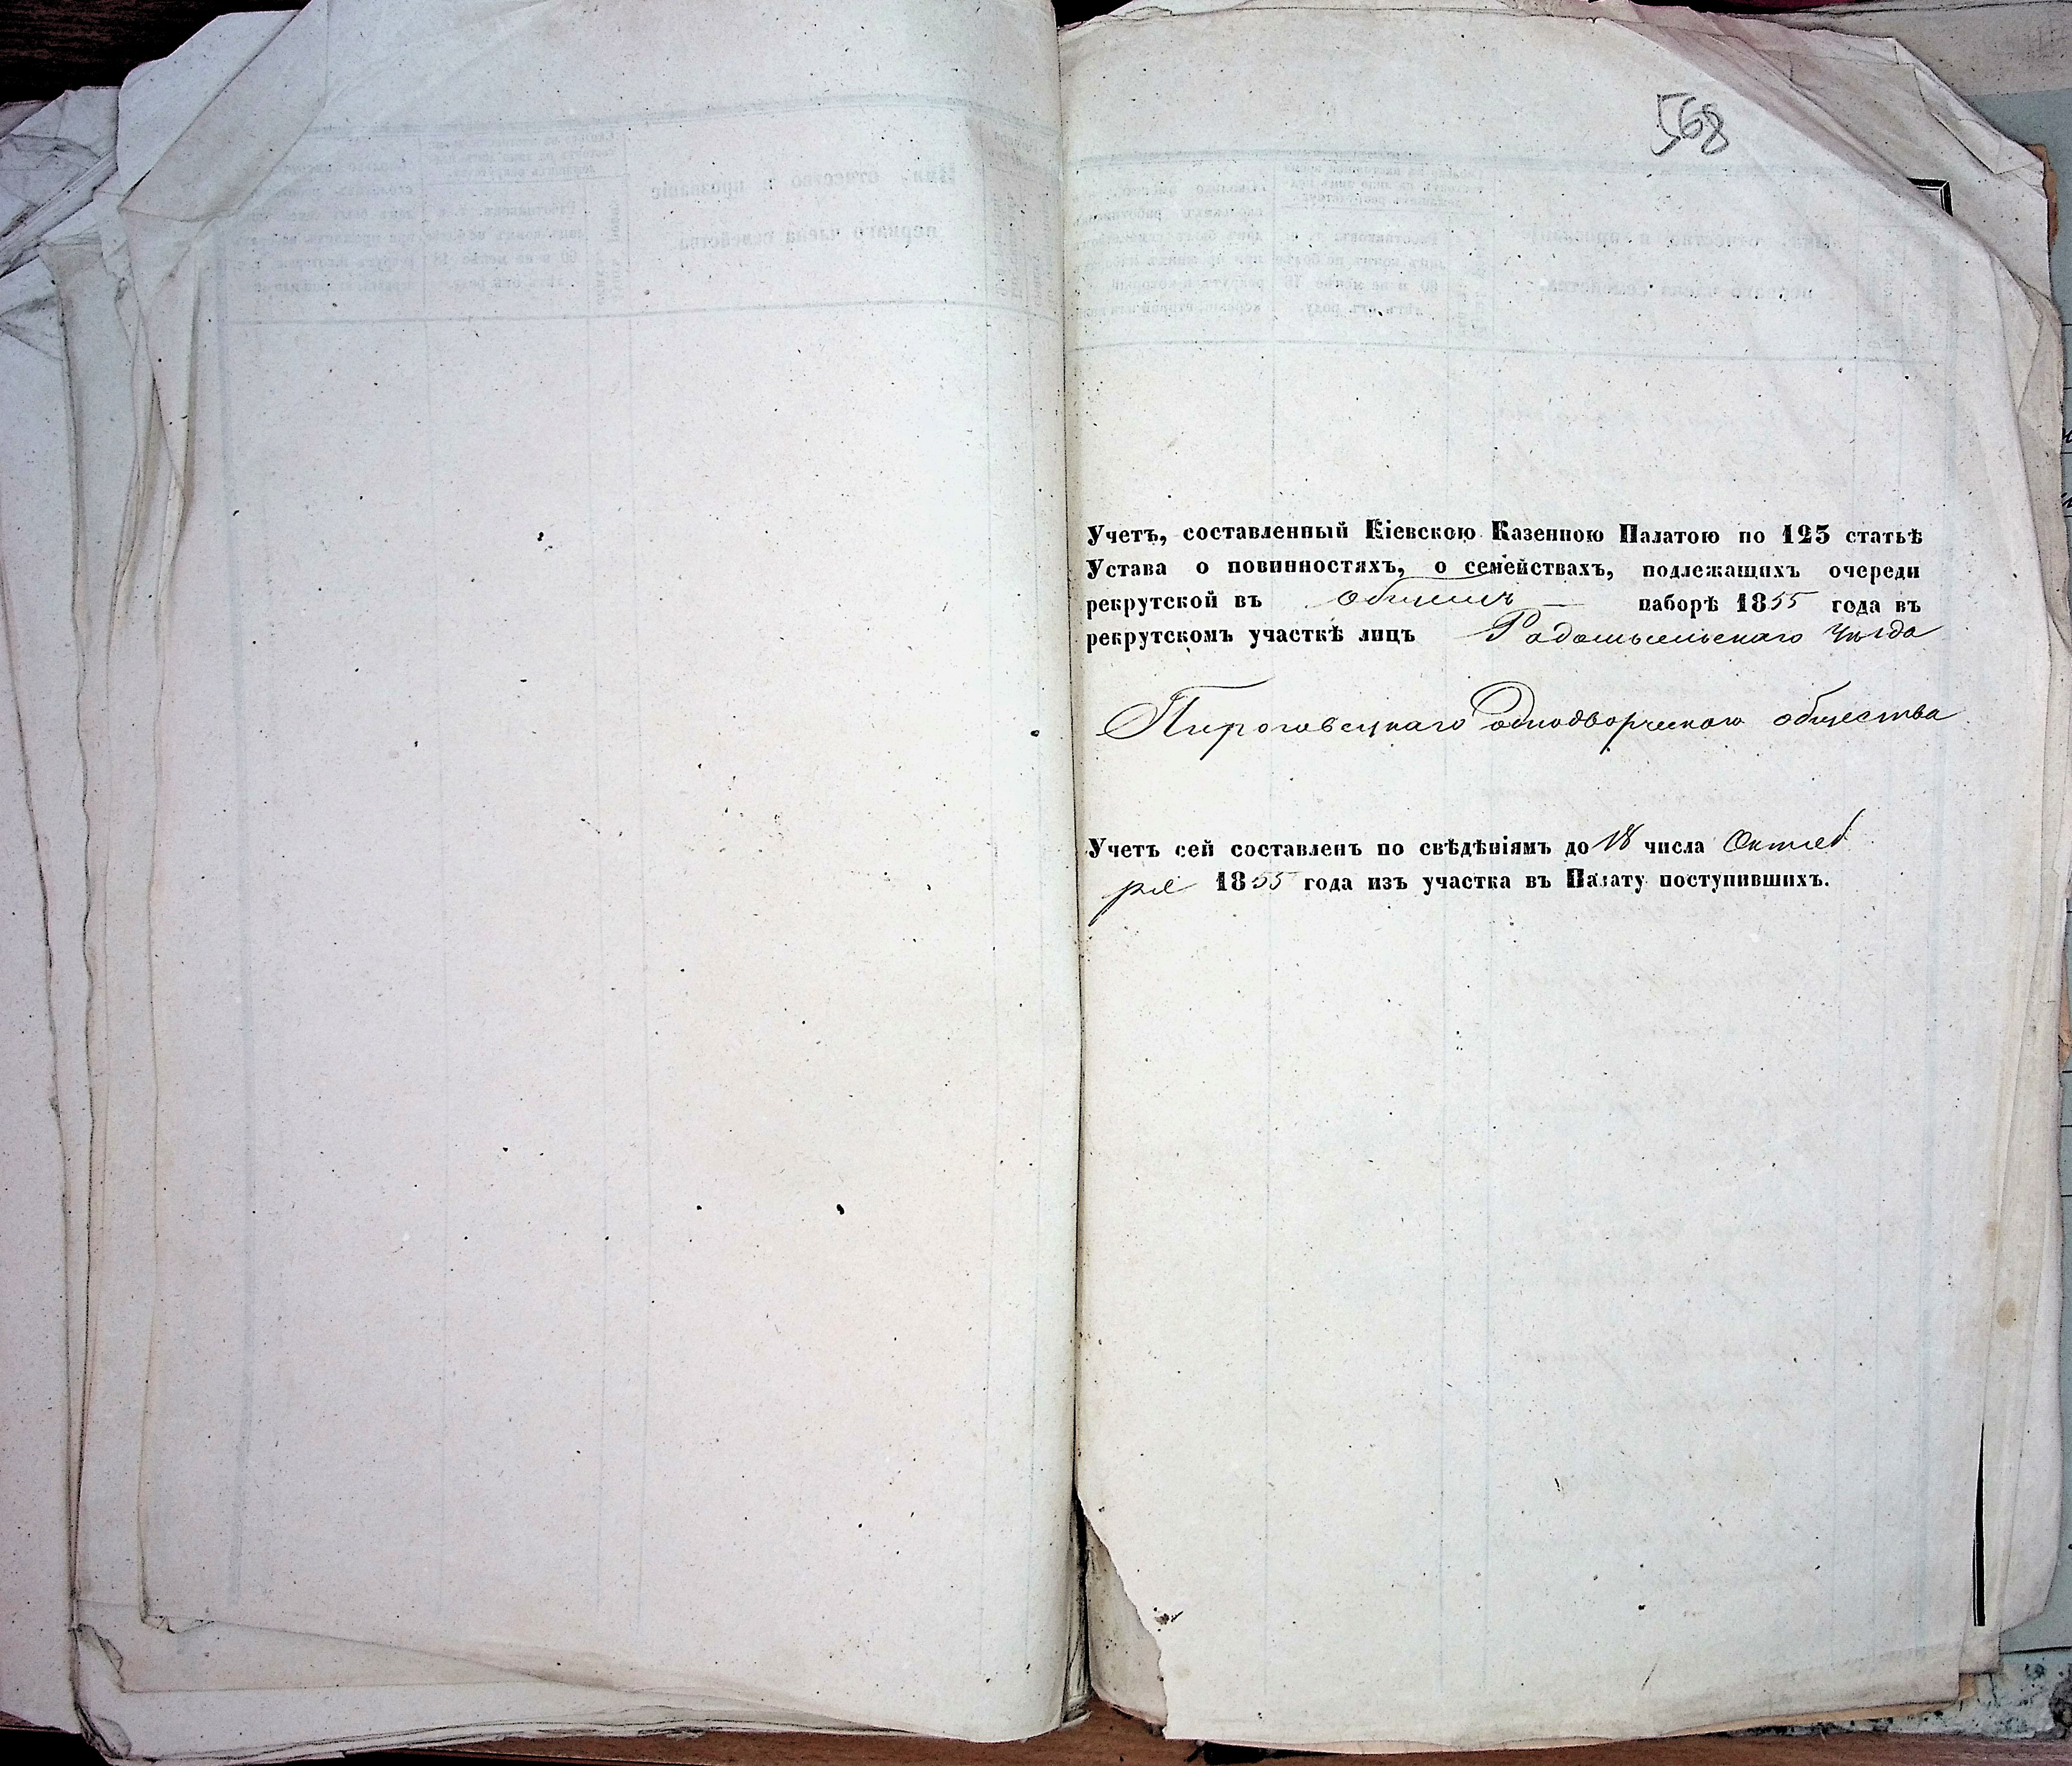 568
Учетъ, составленный Кіевскою Казенною Палатою по 123 статьѣ
Устава о повинностяхъ, о семействахъ, подлежащихъ очереди
рекрутской въ общемъ — наборѣ 1855 года въ
рекрутскомъ участкѣ лицъ Радомысльскаго уѣзда
Пироговецкаго однодворческого общества
Учетъ сей составленъ по свѣдѣніямъ до 18 числа Октяб
ря 1855 года изъ участка въ Палату поступившихъ.